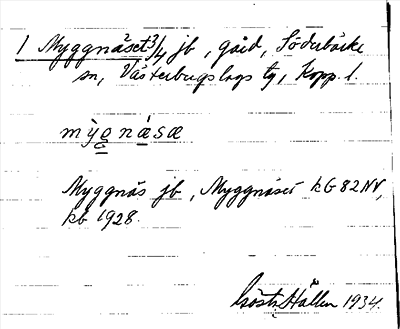 1 Myggnäset 3/4 jb, gård, Söderbärke
sn, Västerbergslags tg, Kopp. l.
mỳg̲nä̲sæ
Myggnäs jb, Myggnäset kG 82 NV,
kb 1928.
Gösta Hallen 1934.